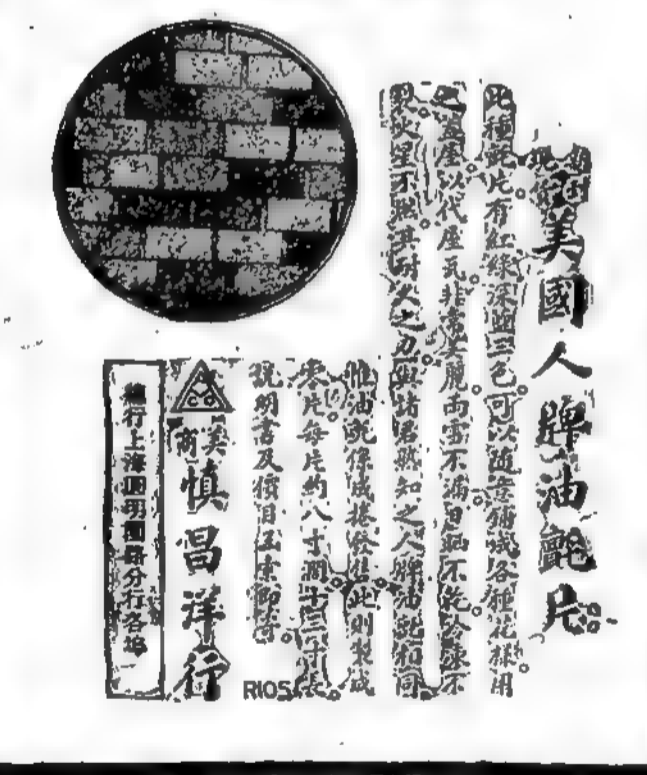 美國人牌油毡片
此種毡片有紅綠深藍三色可以隨意鋪成各種花樣用
之蓋屋以代屋瓦非常美麗雨雪不漏日曬不乾冷凍不
裂火星不燃其耐久之力與諸君熟知之人牌油毡相同
惟油毡係成捲發售此則製成
零片每片約八寸闊十三寸長
說明書及價目函索即寄
RIOS
美商
慎昌洋行
總行上海圓明園路分行各埠